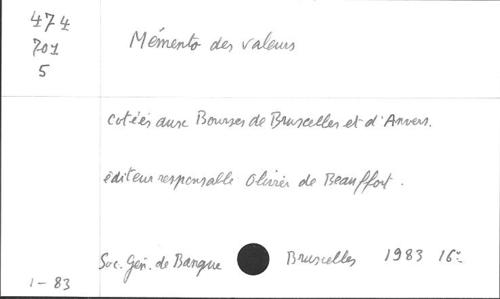 474
701
5
Mémento des valeurs
cotées aux Bourses de Bruxelles et d'Anvers.
éditeur responsable Olivier de Beauffort.
Soc. Gén. de Banque Bruxelles 1983 16°
1-83